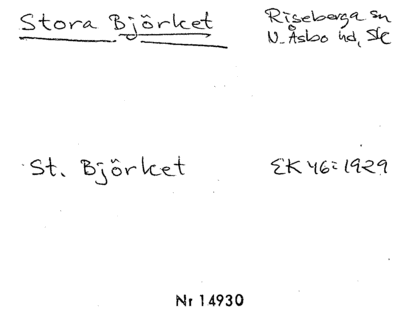 Stora Björket
Riseberga sn
N. Åsbo hd, Sk
St. Björket
EK 46: 1929
Nr 14930